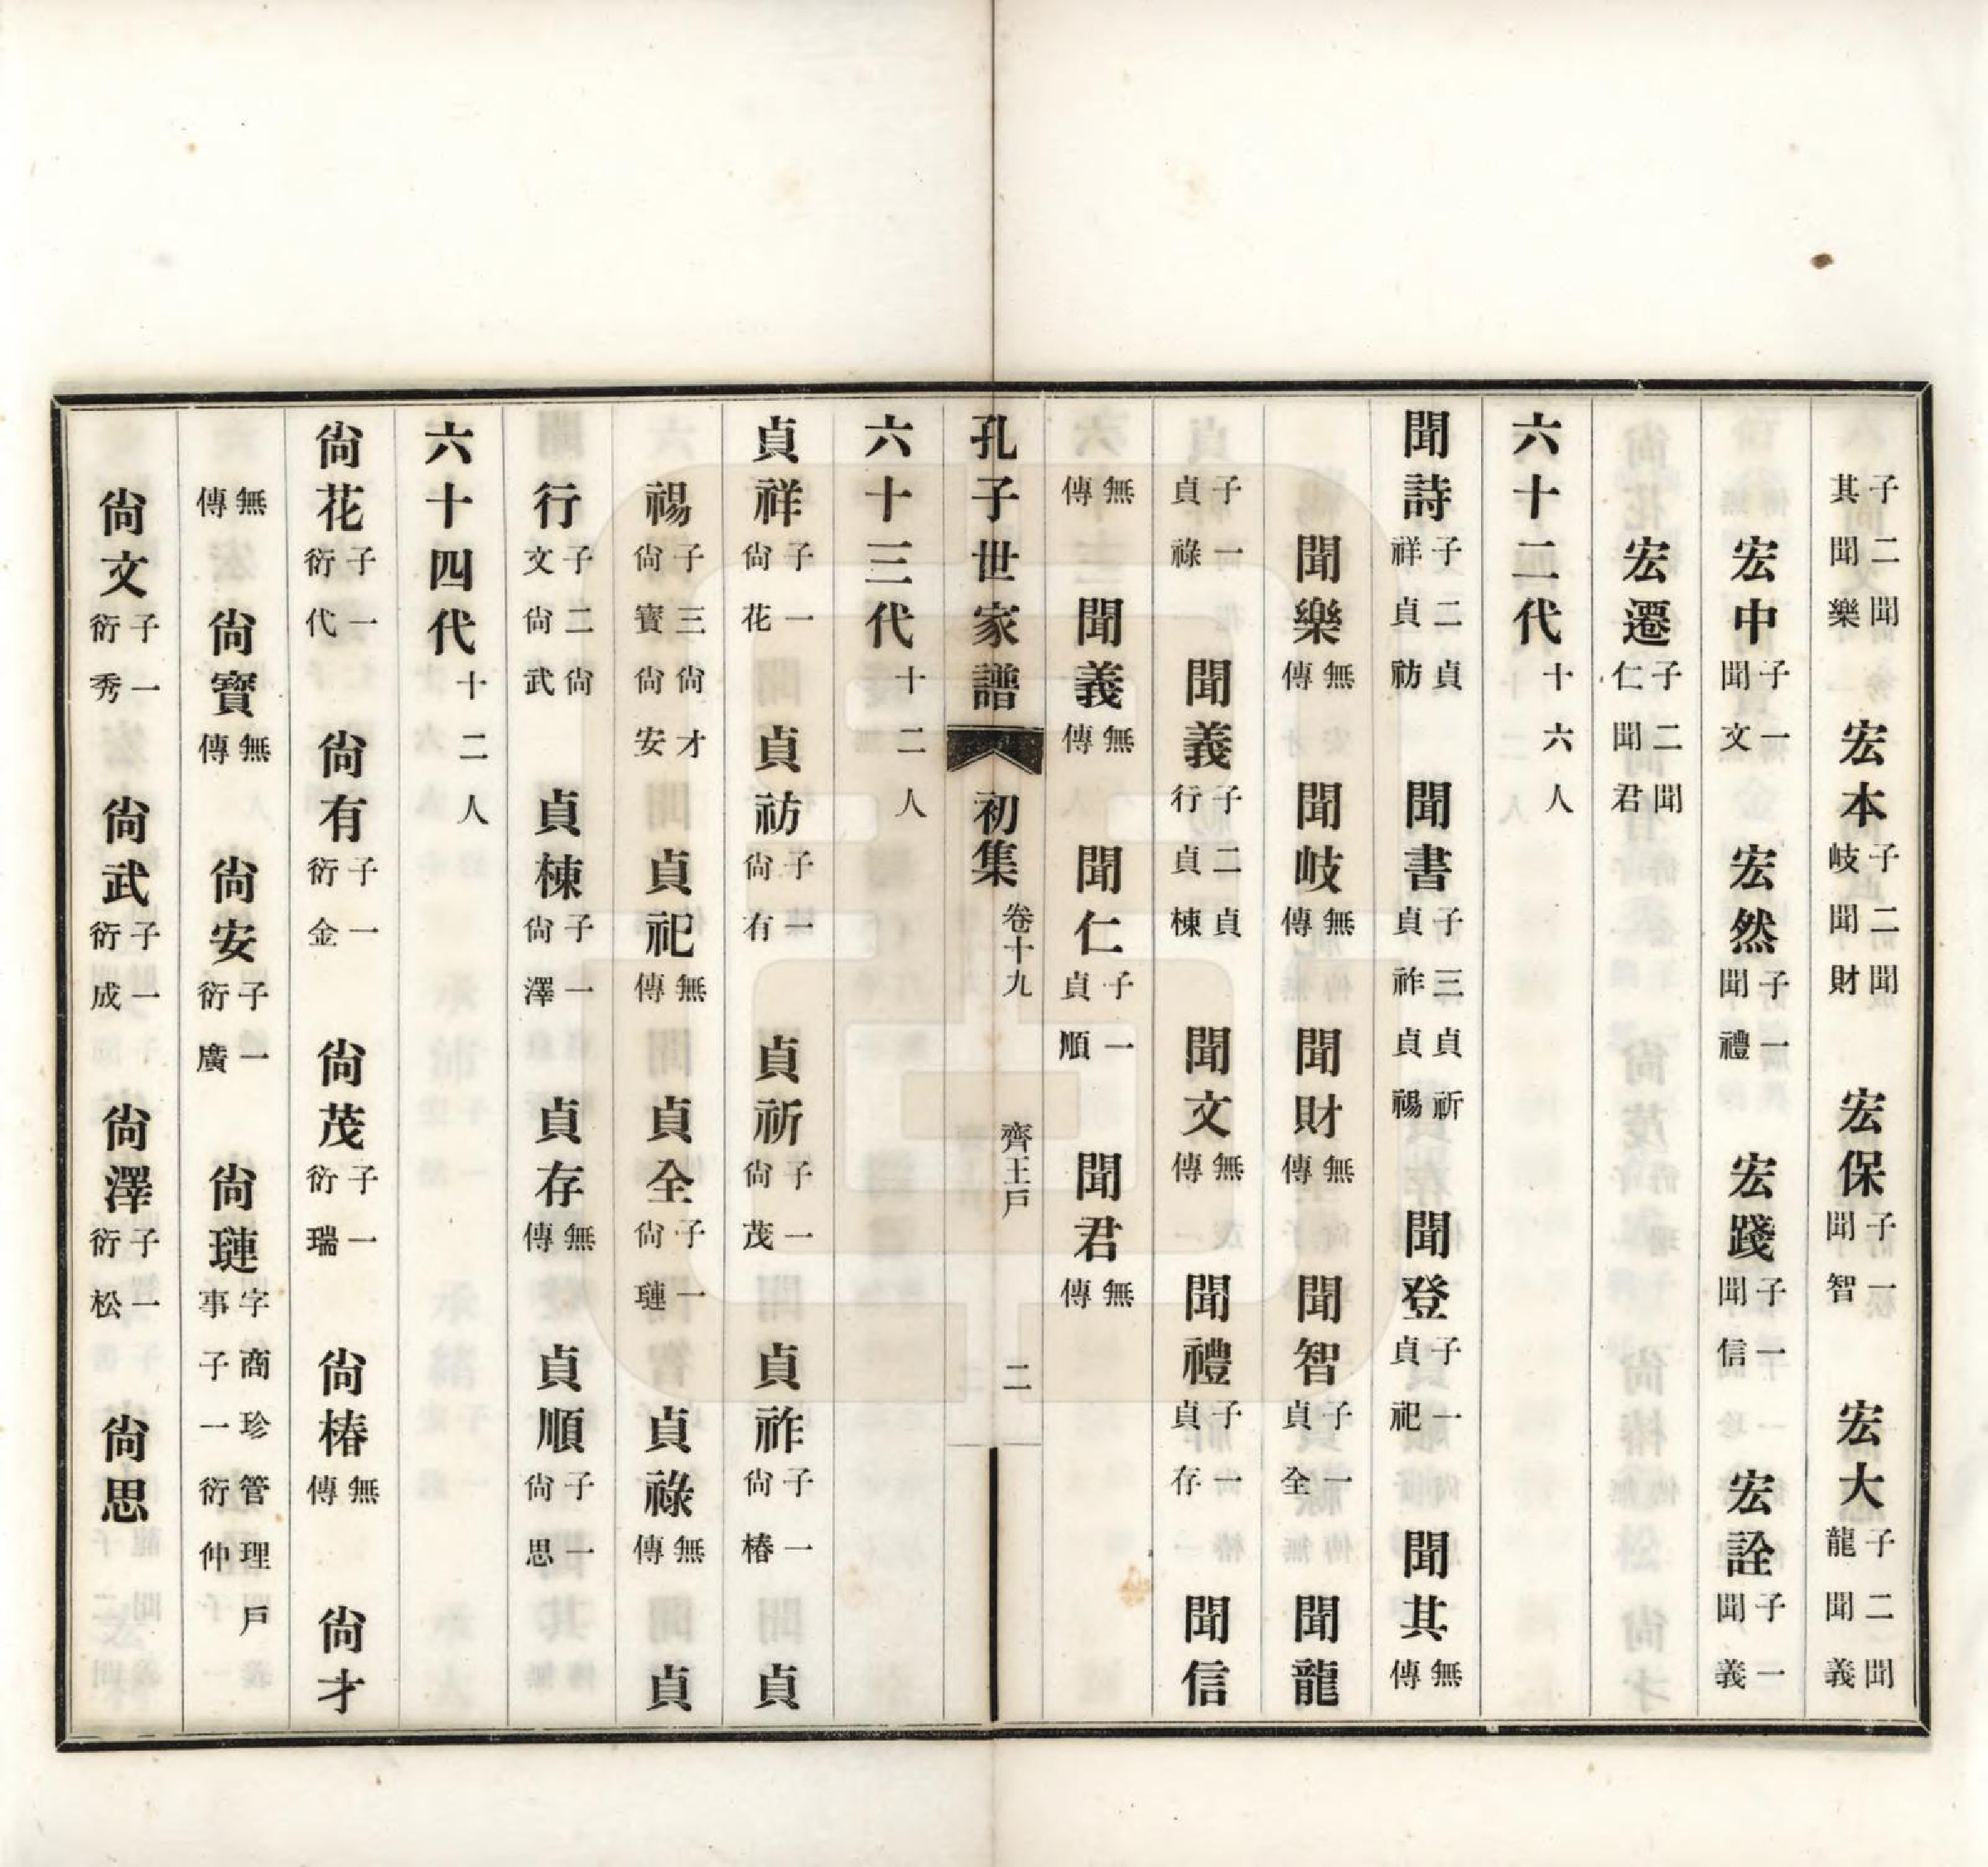 子二聞其聞樂　宏本子二聞岐聞財　宏保子一聞智　宏大子二聞龍聞義
宏中子一聞文　宏然子一聞禮　宏踐子一聞信　宏詮子一聞義
宏遷子二聞仁聞君
六十二代十六人
聞詩子二貞祥貞祊　聞書子三貞祈貞祚貞禓　聞登子一貞祀　聞其無傳
聞樂無傳　聞岐無傳　聞財無傳　聞智子一貞全　聞龍
子一貞祿　聞義子二貞行貞棟　聞文無傳　聞禮子一貞存　聞信
無傳　聞義無傳　聞仁子一貞順　聞君無傳
孔子世家譜　初集　卷十九　齊王戶　二
六十三代十二人
貞祥子一尙花　貞祊子一尙有　貞祈子一尙茂　貞祚子一尙椿　貞
禓子三尙才尙寳尙安　貞祀無傳　貞全子一尙璉　貞祿無傳　貞
行子二尙文尙武　貞棟子一尙澤　貞存無傳　貞順子一尙思
六十四代十二人
尙花子一衍代　尙有子一衍金　尙茂子一衍瑞　尙椿無傳　尙才
無傳　尙寳無傳　尙安子一衍廣　尙璉字商珍管理戶事子一衍仲
尙文子一衍秀　尙武子一衍成　尙澤子一衍松　尙思